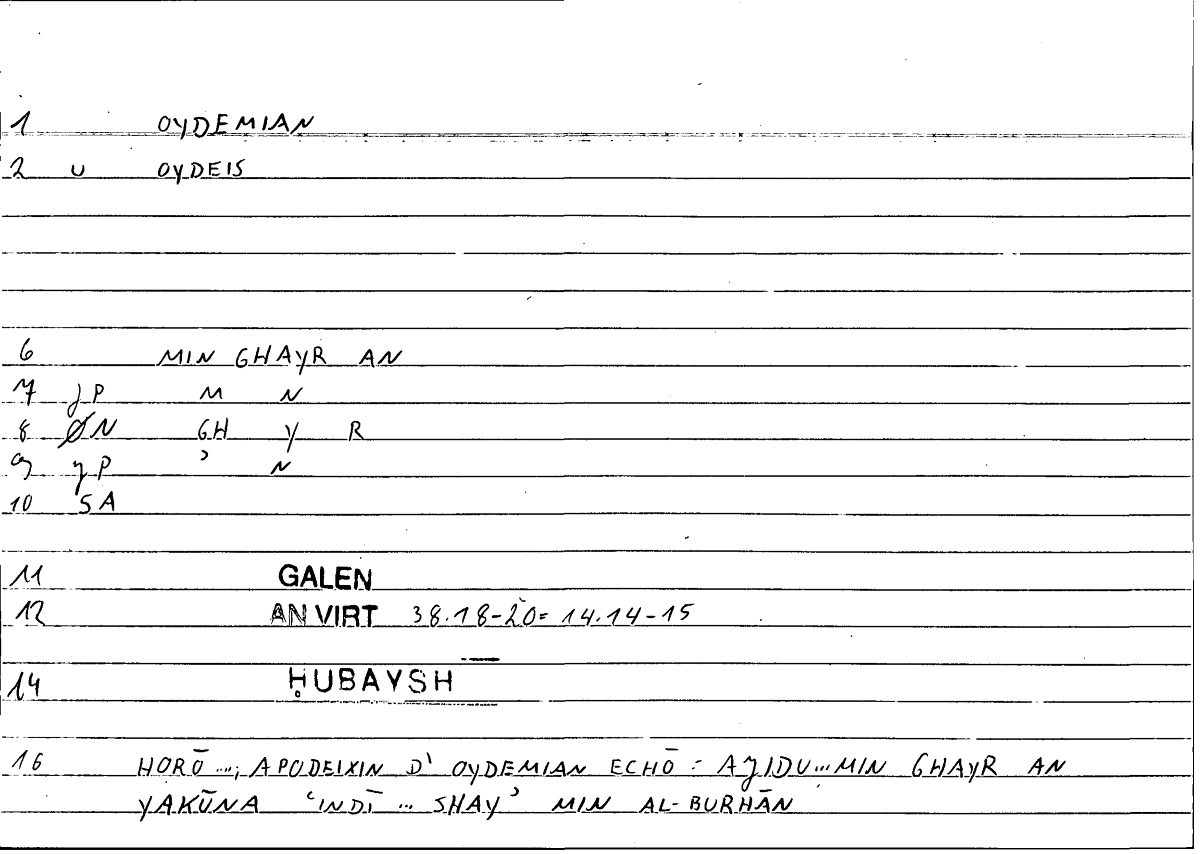 1 OYDEMIAN
2 U OYDEIS
6 MIN GHAYR AN
7 JP M N
8 ØN GH Y R
9 JP ʾ N
10 SA
11 GALEN
12 AN VIRT 38.18-20= 14.14-15
14 ḤUBAYSH
16 HORŌ ...; APODEIXIN D' OYDEMIAN ECHŌ = AJIDU...MIN GHAYR AN
YAKŪNA ʿINDĪ ... SHAYʾ MIN AL-BURHĀN